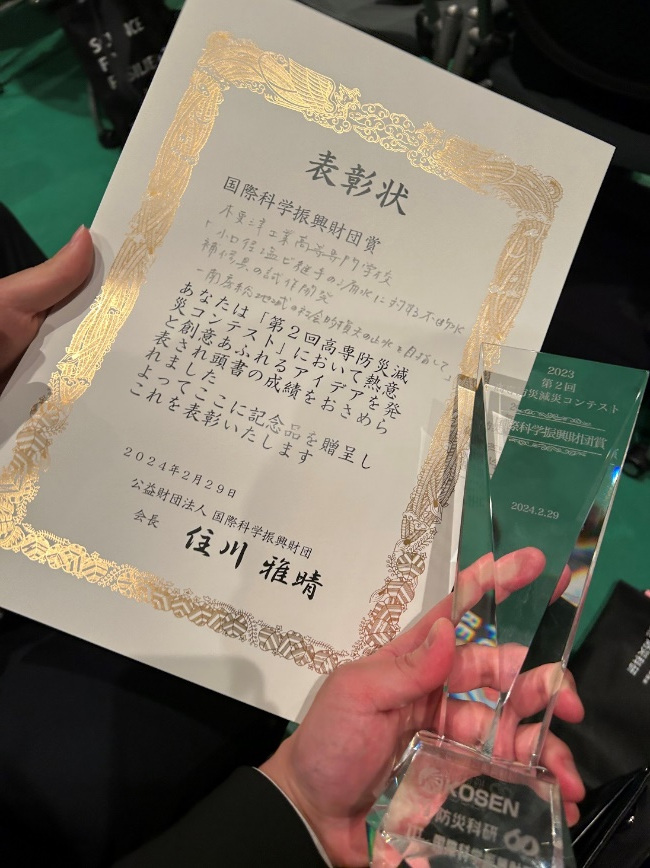 表彰状
国際科学振興財団賞
木更津工業高等専門学校
「小口径塩ビ継手の漏水に対する不断水
補修具の試作開発
-南房総地域の社会的損失の止水を目指して-」
あなたは「第2回高専防災減
災コンテスト」において熱意
と創意あふれるアイデアを発
表され頭書の成績をおさめら
れました
よってここに記念品を贈呈し
これを表彰いたします
2024年2月29日
公益財団法人 国際科学振興財団
会長
住川 雅晴
2023
第2回
防災減災コンテスト
国際科学振興財団賞
2024.2.29
KOSEN
防災科研
60